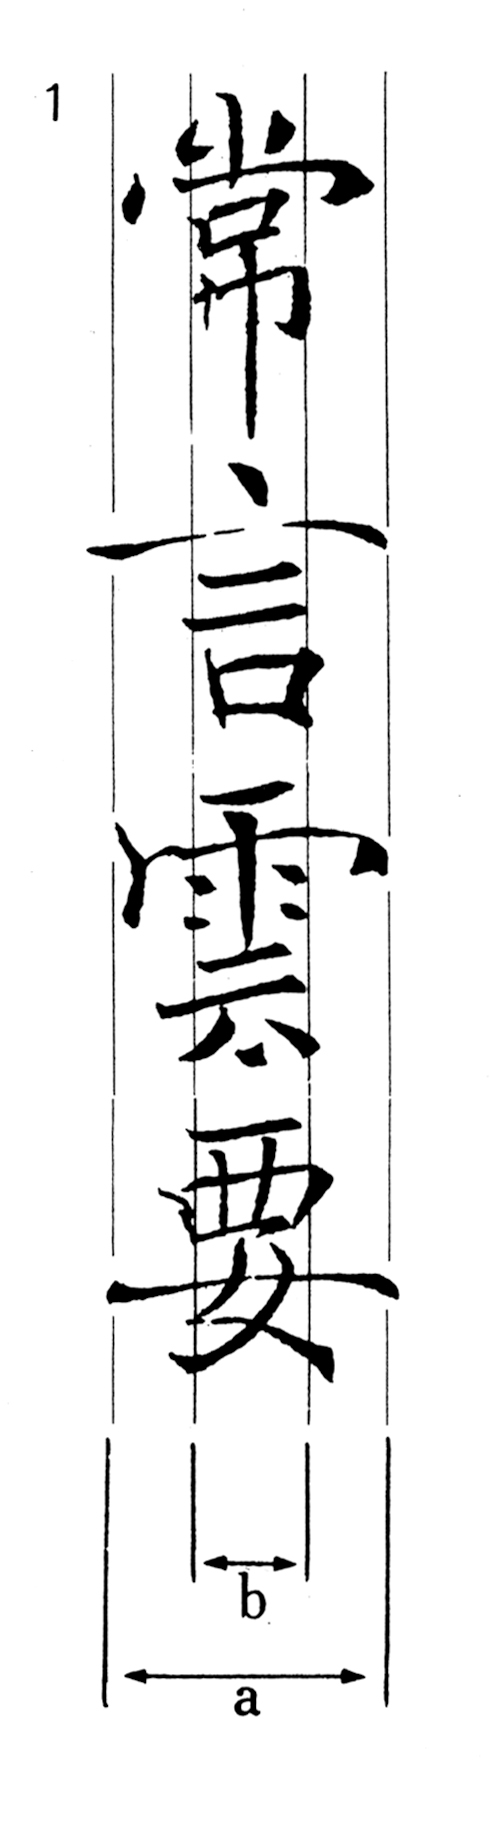 1
常言雲要
b
a